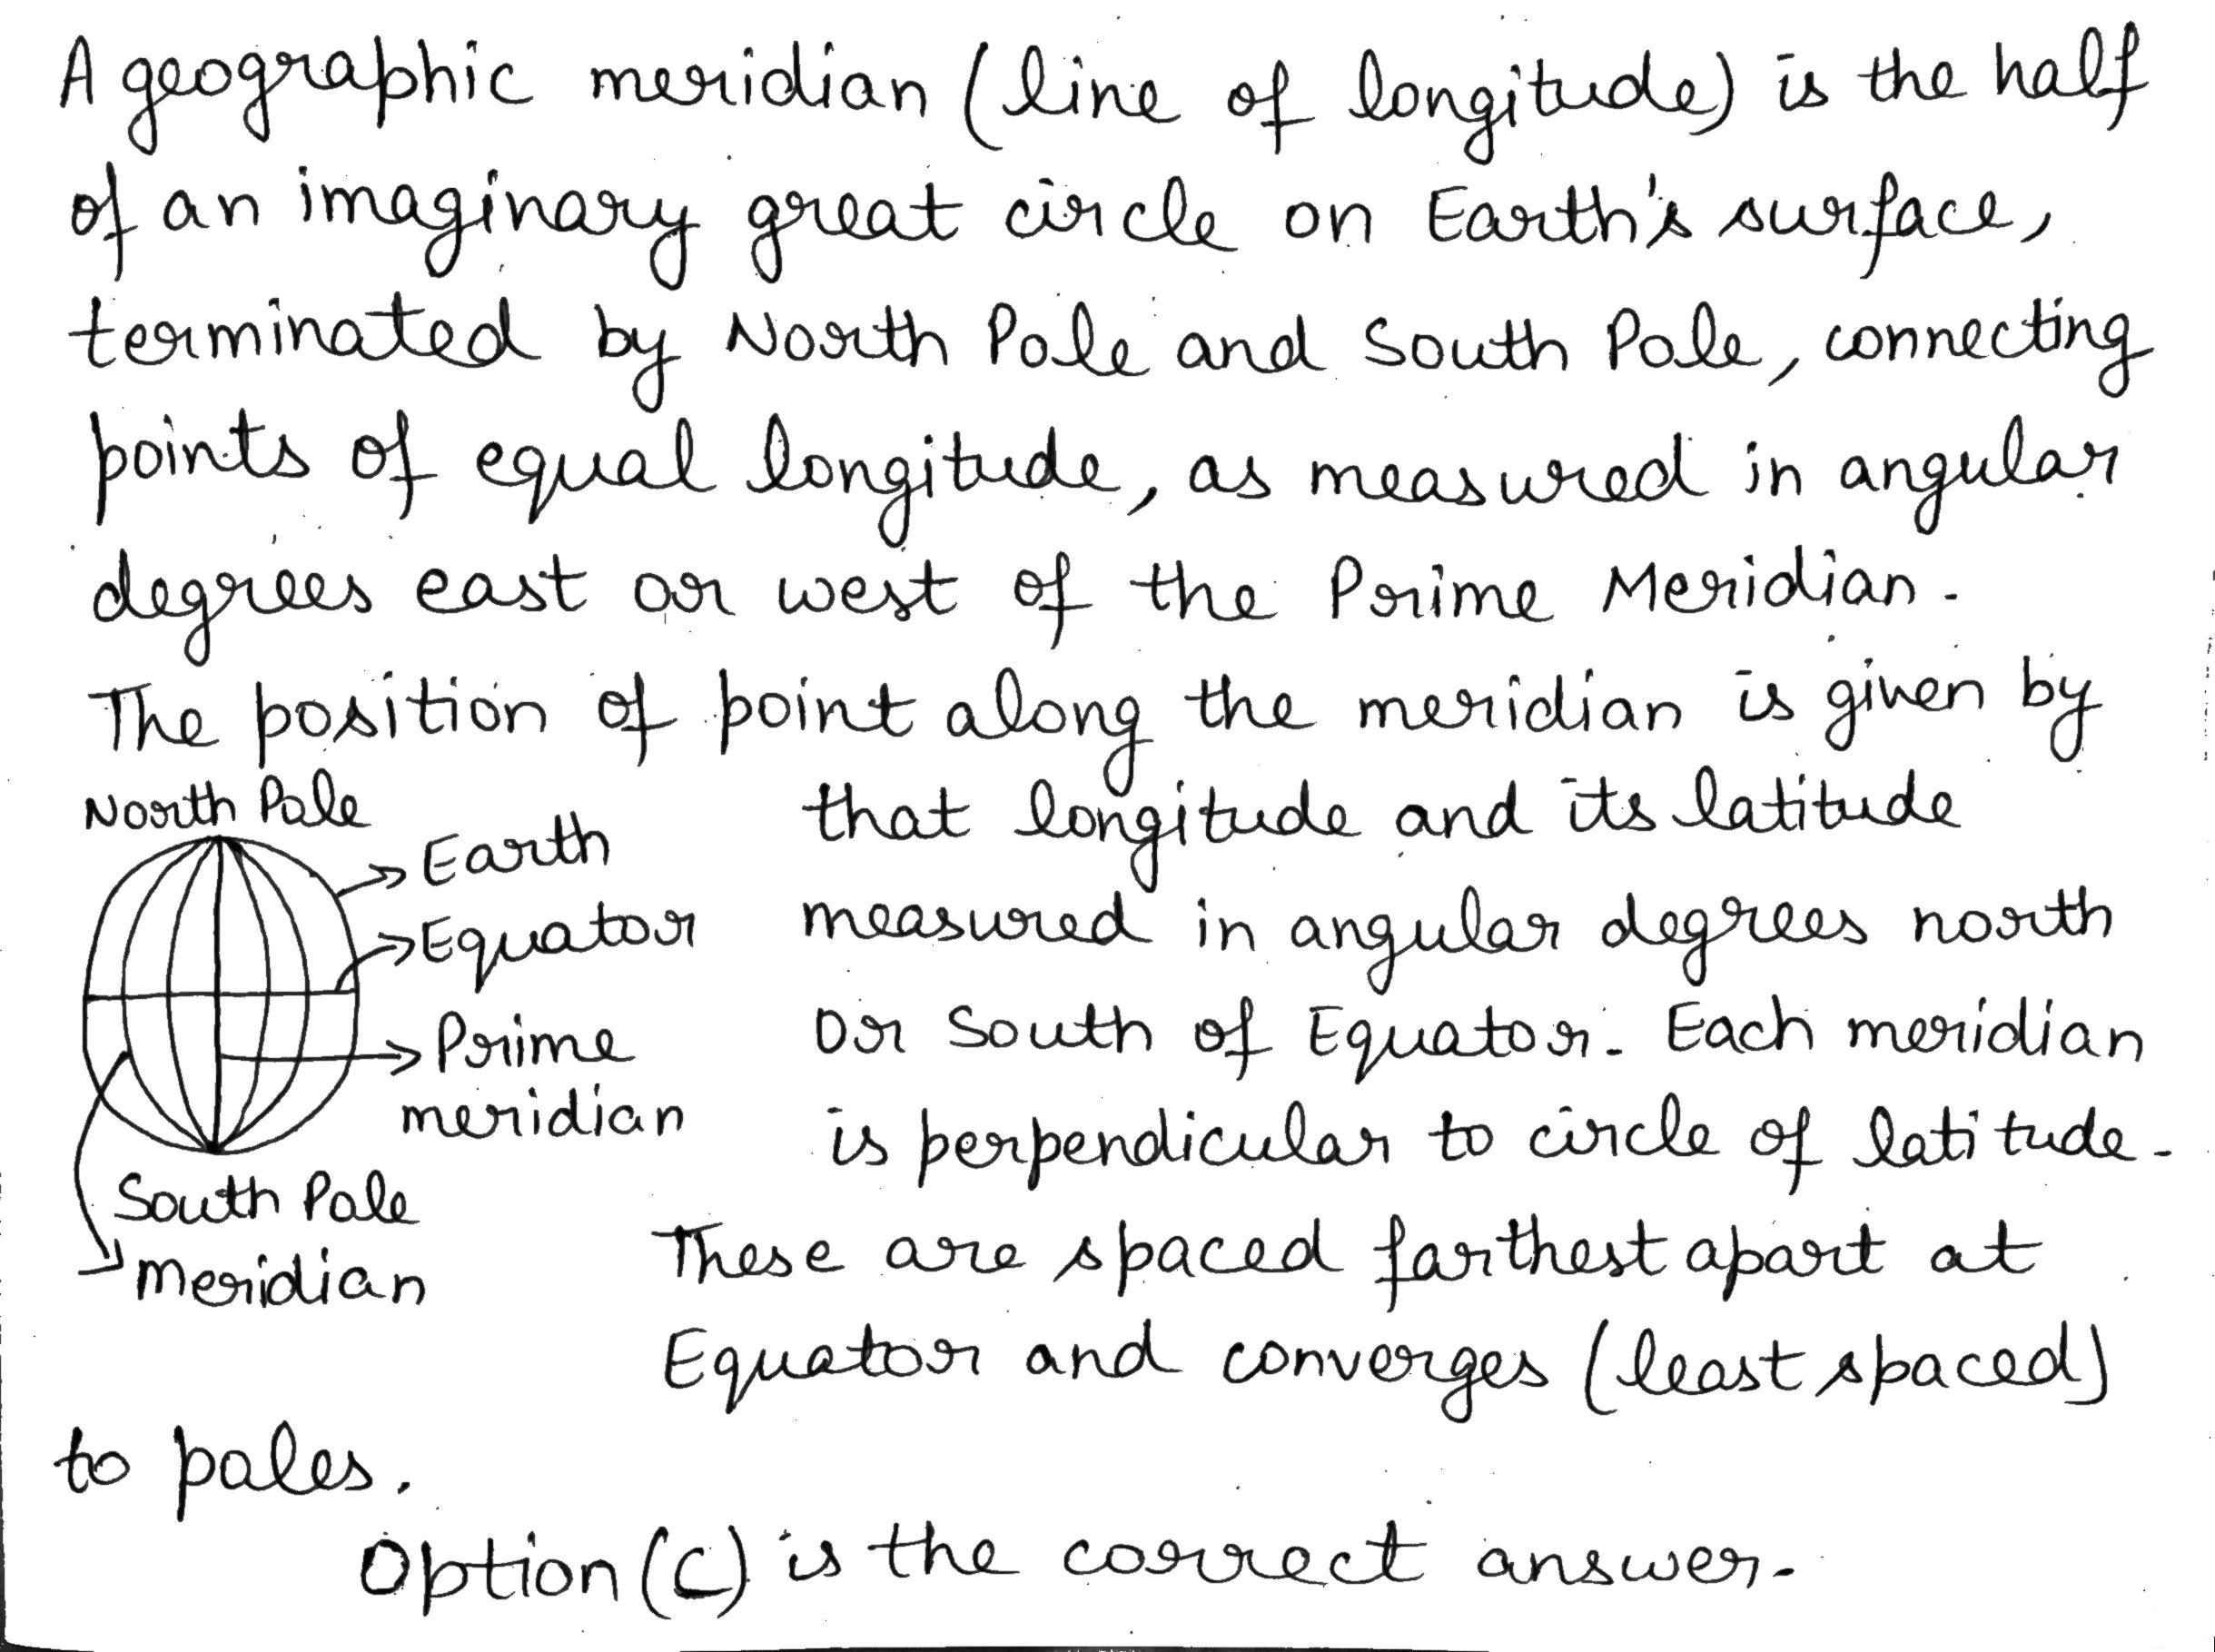 A geographic meridian (line of longitude) is the half
of an imaginary great circle on Earth's surface,
terminated by North Pole and South Pole, connecting
points of equal longitude, as measured in angular
degrees east or west of the Prime Meridian.
The position of point along the meridian is given by
that longitude and its latitude
measured in angular degrees north
Or South of Equator. Each meridian
is perpendicular to circle of latitude.
These are spaced farthest apart at
Equator and converges (least spaced)
to poles.
North Pole
Earth
Equator
Prime
meridian
South Pole
Meridian
Option (C) is the correct answer.